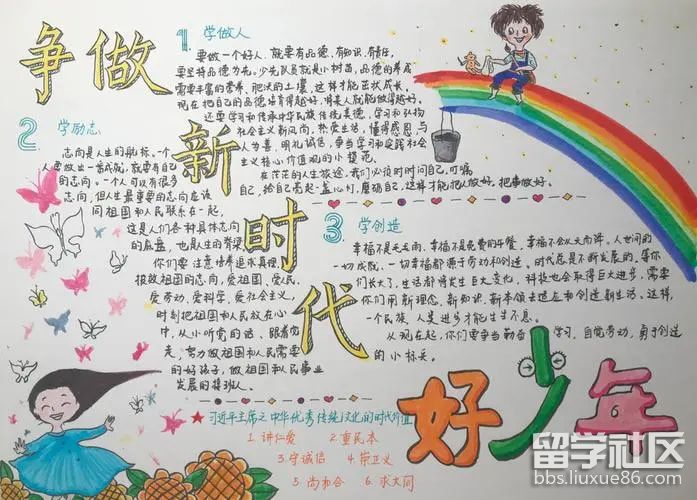 争做
新
时
代
好少年
1 学做人
要做一个好人,就要有品德、有知识、有责任,
要坚持品德为先。少先队员就是小树苗,品德的养成
需要丰富的营养、肥沃的土壤,这样才能茁壮成长。
现在把自己的品德培育得越好,将来人就能做得越好。
还要学习和传承中华民族传统美德,学习和弘扬
社会主义新风尚,热爱生活,懂得感恩,与
人为善,明礼诚信,争当学习和实践社会
主义核心价值观的小模范。
在茫茫的人生旅途,我们必须时时问自己,叮嘱
自己,给自己亮起一盏心灯,磨砺自己,这样才能把人做好,把事做好。
2 学励志
志向是人生的航标。一个
人要做出一番成就,就要有自己
的志向。一个人可以有很多
志向,但人生最重要的志向应该
同祖国和人民联系在一起,
这是人们各种具体志向
的底盘,也是人生的脊梁。
你们要注意培养追求真理、
报效祖国的志向,爱祖国、爱人民、
爱劳动、爱科学、爱社会主义,
时刻把祖国和人民放在心
中,从小听党的话、跟着党
走,努力做祖国和人民需要
的好孩子,做祖国和人民事业
发展的接班人。
3 学创造
幸福不是毛毛雨,幸福不是免费的午餐,幸福不会从天而降。人世间的
一切成就、一切幸福都源于劳动和创造。时代总是不断发展的,等你
们长大了,生活都将发生巨大变化,科技也会取得巨大进步,需要
你们用新理念、新知识、新本领去适应和创造新生活,这样,
一个民族、人类进步才能生生不息。
从现在起,你们要争当勤奋学习、自觉劳动、勇于创造
的小标兵。
★习近平主席之中华优秀传统文化的时代价值
1.讲仁爱 2.重民本
3.守诚信 4.崇正义
5.尚和合 6.求大同
留学社区
bbs.liuxue86.com